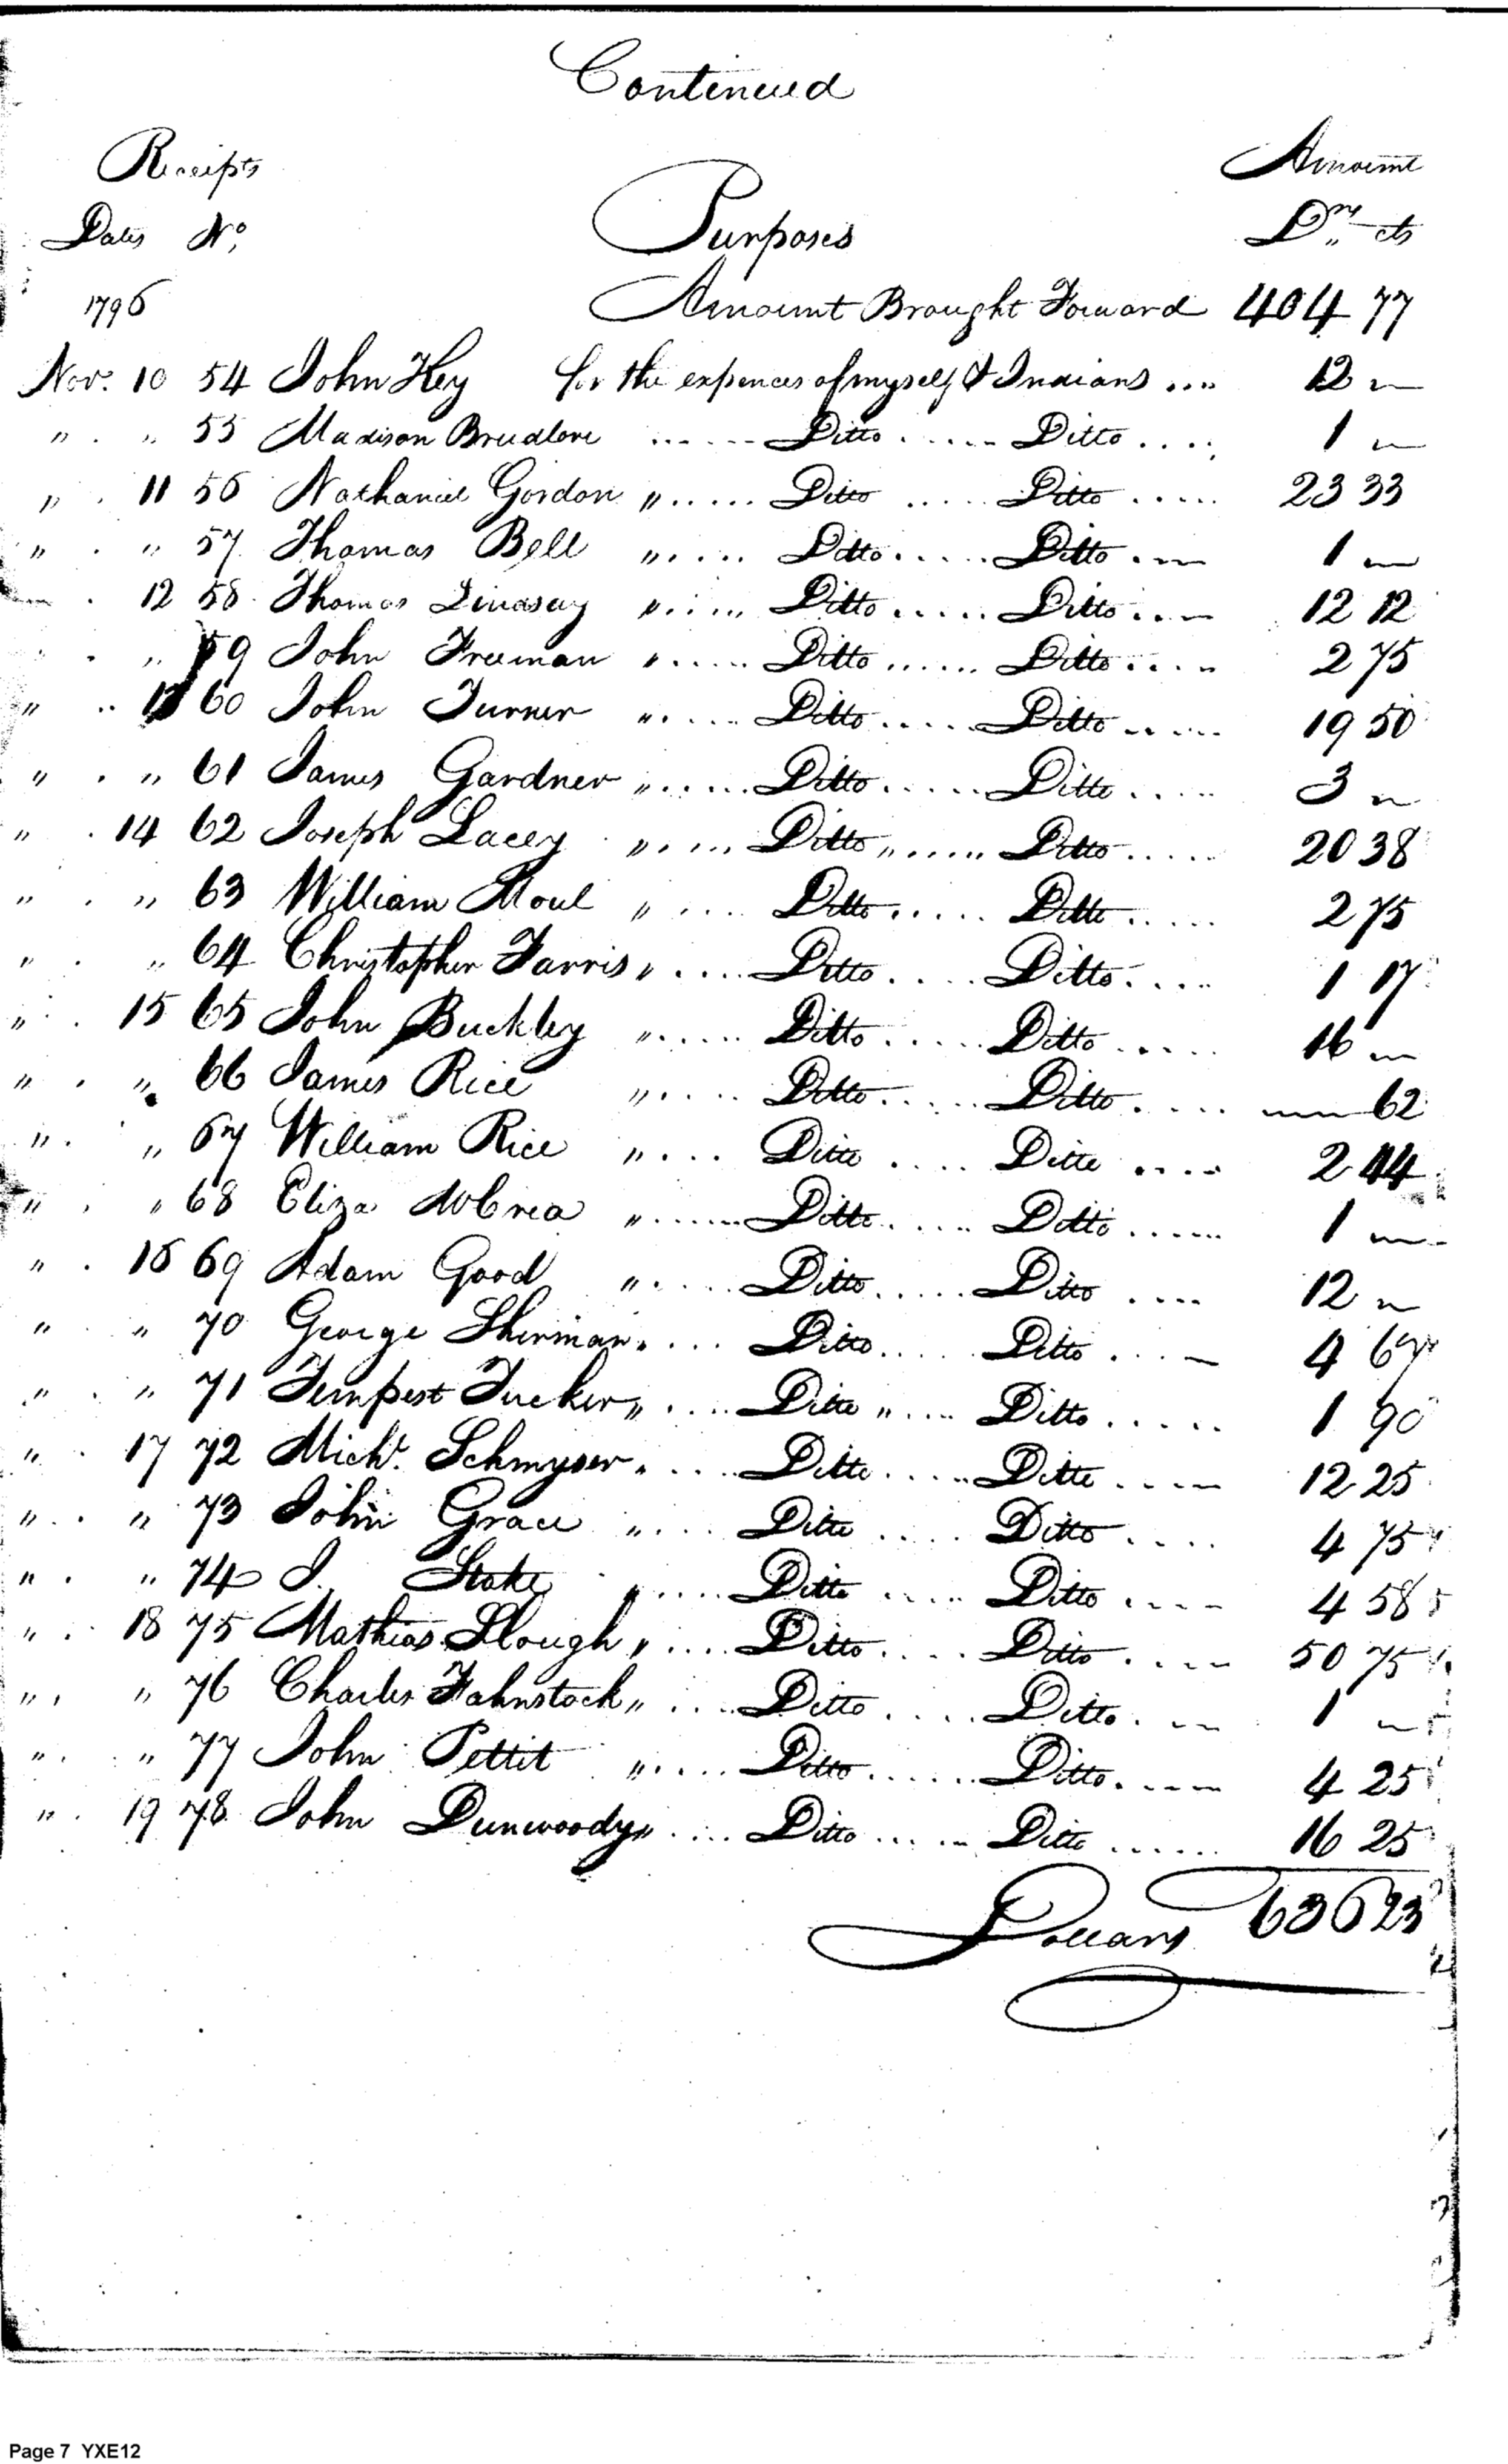 Continued
Receipts Amount
Dates No. Purposes Drs cts
1796 Amount Brought Forward 404 77
Nov. 10 54 John Key for the expences of myself & Indians .... 12 "
" . " 55 Madison Brudlove ...... Ditto ..... Ditto .... 1 "
" . 11 56 Nathaniel Gordon " ..... Ditto ..... Ditto ..... 23 33
" . " 57 Thomas Bell " .... Ditto ..... Ditto ... 1 "
" . 12 58 Thomas Lindsay " .... Ditto ..... Ditto .... 12 12
" . " 59 John Freeman " ..... Ditto ...... Ditto .... 2 75
" . 13 60 John Turner " .... Ditto ..... Ditto ..... 19 50
" . " 61 James Gardner " ..... Ditto ..... Ditto .... 3 "
" . 14 62 Joseph Lacey " .... Ditto " ..... Ditto ..... 20 38
" . " 63 William Moul " .... Ditto ..... Ditto ..... 2 75
" . " 64 Christopher Farris " .... Ditto .... Ditto .... 1 17
" . 15 65 John Buckley " ..... Ditto ..... Ditto ..... 16 "
" . " 66 James Rice " .... Ditto ..... Ditto .... " 62
" . " 67 William Rice " .... Ditto .... Ditto .... 2 44
" . " 68 Eliza McCrea " ...... Ditto ..... Ditto ..... 1 "
" . 16 69 Adam Good " .... Ditto ..... Ditto .... 12 "
" . " 70 George Sherman " .... Ditto ..... Ditto .... 4 67
" . " 71 Tempest Tucker " .... Ditto " .... Ditto ..... 1 90
" . 17 72 Michl. Schmyser " .... Ditto ..... Ditto .... 12 25
" . " 73 John Grace " .... Ditto .... Ditto .... 4 75
" . " 74 J. Stake " .... Ditto .... Ditto .... 4 58
" . 18 75 Mathias Slough " .... Ditto .... Ditto .... 50 75
" . " 76 Charles Fahnstock " .... Ditto .... Ditto .... 1 "
" . " 77 John Pettit " .... Ditto ..... Ditto .... 4 25
" . 19 78 John Dunwoody " .... Ditto ..... Ditto ...... 16 25
Dollars 636 23
Page 7 YXE12